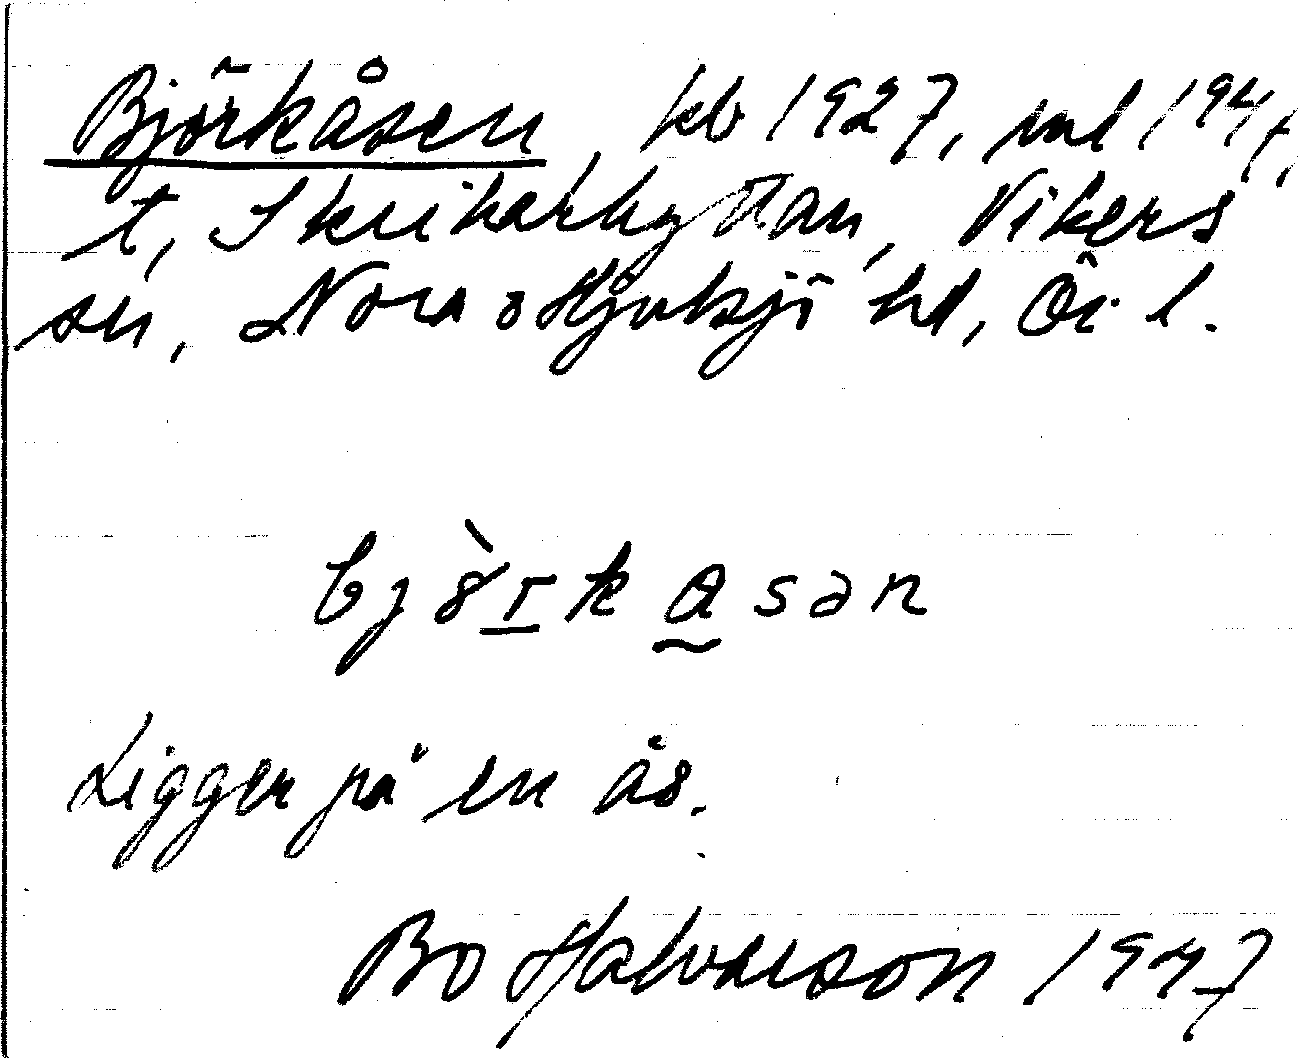 Björkåsen, kb 1927, ml 1947,
t, Skrikarhyttan, Vikers
sn, Nora o Hjulsjö hd, Ör l.
bjòrkasən
Ligger på en ås.
Bo Halvarson 1947